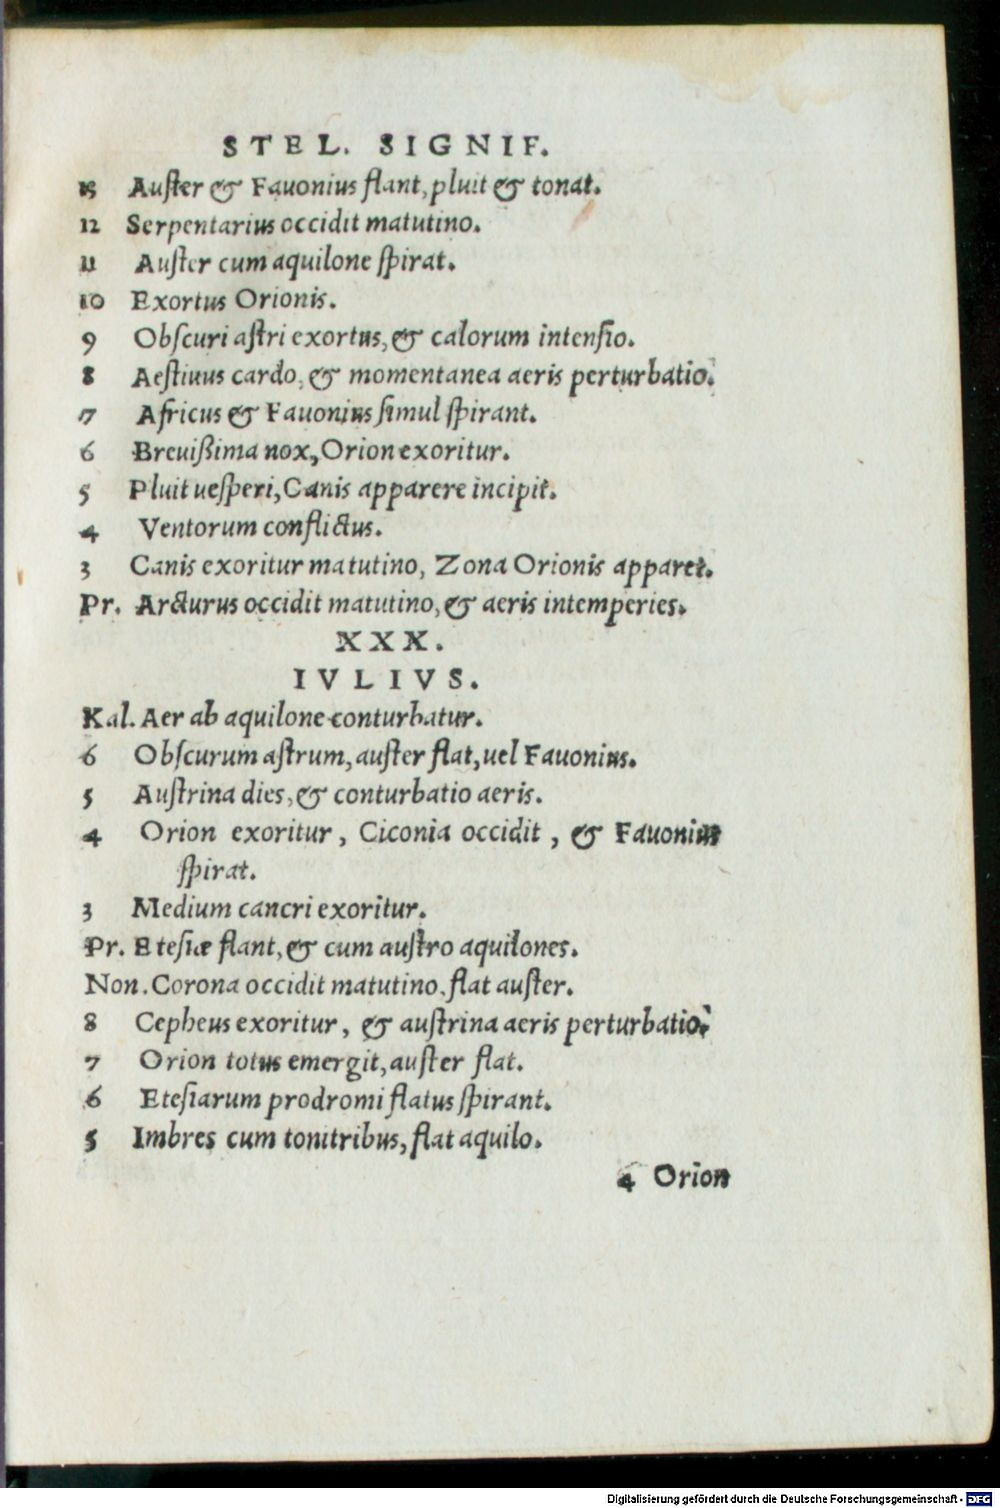 STEL. SIGNIF.
13 Auſter & Fauonius flant, pluit & tonat.
12 Serpentarius occidit matutino.
11 Auſter cum aquilone ſpirat.
10 Exortus Orionis.
9 Obſcuri aſtri exortus, & calorum intenſio.
8 Aeſtiuus cardo, & momentanea aeris perturbatio.
7 Africus & Fauonius ſimul ſpirant.
6 Breuißima nox, Orion exoritur.
5 Pluit ueſperi, Canis apparere incipit.
4 Ventorum conflictus.
3 Canis exoritur matutino, Zona Orionis apparet.
Pr. Arcturus occidit matutino, & aeris intemperies.
XXX.
IVLIVS.
Kal. Aer ab aquilone conturbatur.
6 Obſcurum aſtrum, auſter flat, uel Fauonius.
5 Auſtrina dies, & conturbatio aeris.
4 Orion exoritur, Ciconia occidit, & Fauonius
ſpirat.
3 Medium cancri exoritur.
Pr. Eteſiæ flant, & cum auſtro aquilones.
Non. Corona occidit matutino. flat auſter.
8 Cepheus exoritur, & auſtrina aeris perturbatio.
7 Orion totus emergit, auſter flat.
6 Eteſiarum prodromi flatus ſpirant.
5 Imbres cum tonitribus, flat aquilo.
4 Orion
Digitalisierung gefördert durch die Deutsche Forschungsgemeinschaft - DFG